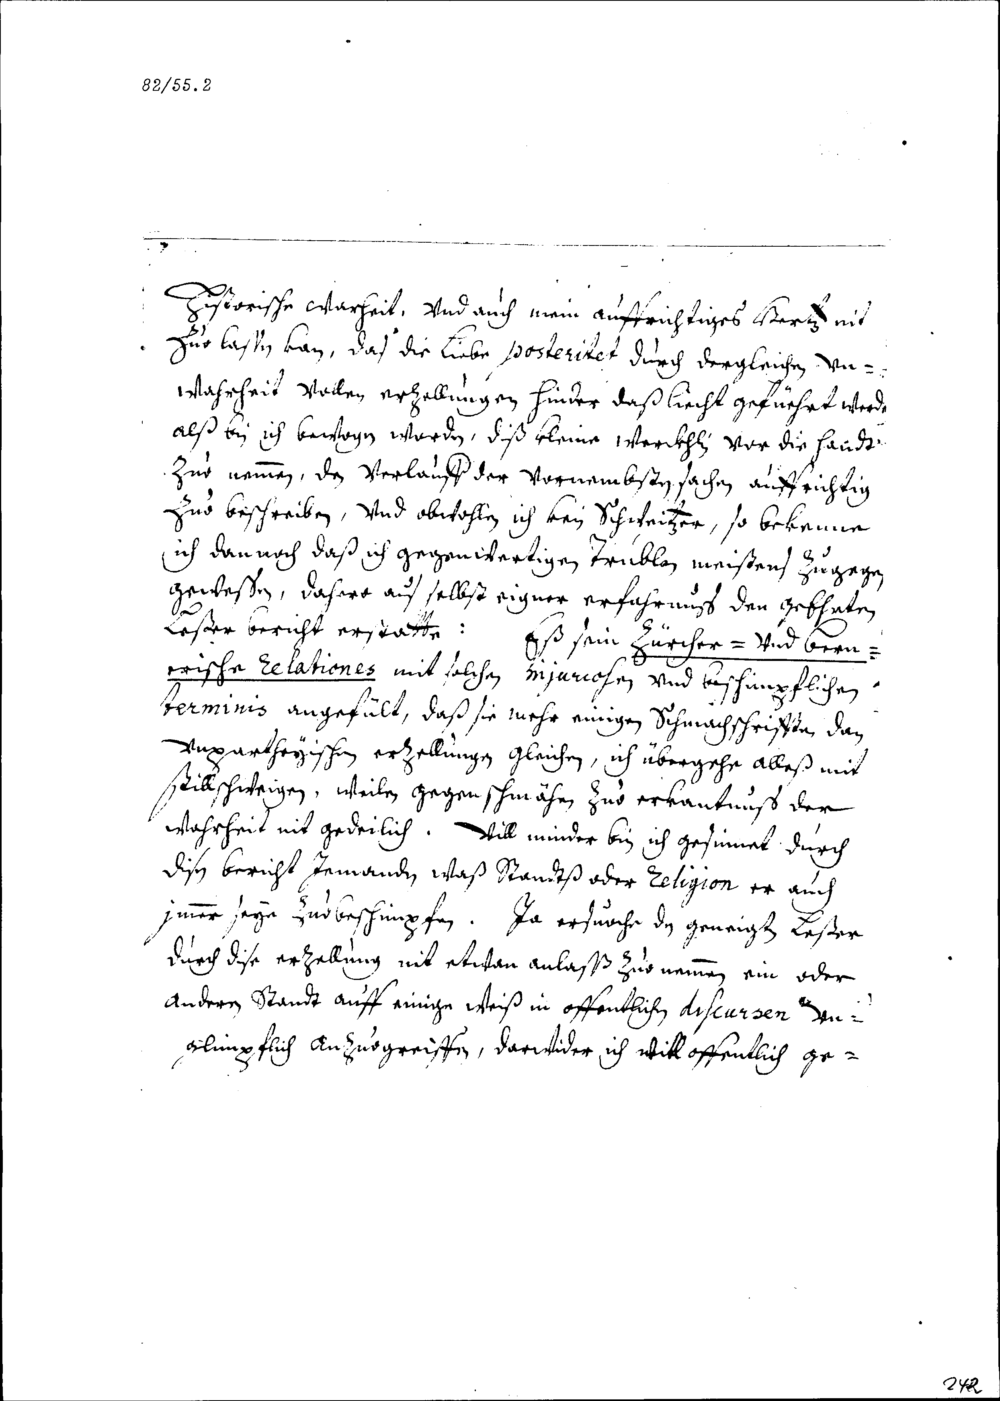 82/55.2
Historische Warheit, Und auch mein auffrichtiges Hertz nit
Zuo lassen kan, daß die Liebe posteritet durch dergleichen Vn=
wahrheit Vollen erzellungen hinder daß liecht gefüehrt werde
alß bin ich bewogen worden, diß kleine Werckhlin Vor die handt
Zuo nemmen, den Verlauff der Vornembsten sachen auffrichtig
Zuo beschreiben, Und obwohlen ich kein Schweitzer, so bekenne
ich dannoch daß ich gegenwertigen Trublen meistens Zugegen
gewessen, dahero auß selbst eigner erfahrnuß den geehrten
Leßer bericht erstatte: Eß sein Zürcher= Und bern=
erische Relationes mit solchen injuriosen Und beschimpflichen
terminis angefült, daß sie mehr einigen Schmachschrifften dan
Vnpartheyischen erzellungen gleichen, ich übergehe alleß mit
stillschweigen, weilen gegenschmähen Zuo erkantnuß der
Wahrheit nit gedeilich. Vill minder bin ich gesinnet durch
disen bericht Jemanden waß Standtß oder Religion er auch
jmmer seye Zuo beschimpfen. Ja ersuoche den geneigten Leßer
durch dise erzellung nit etwan anlaß Zuo nemmen ein oder
anderen Standt auff einige weiß in offentlichen discursen Vn=
glimpflich anzuogreiffen, darwider ich will offentlich ge=
242